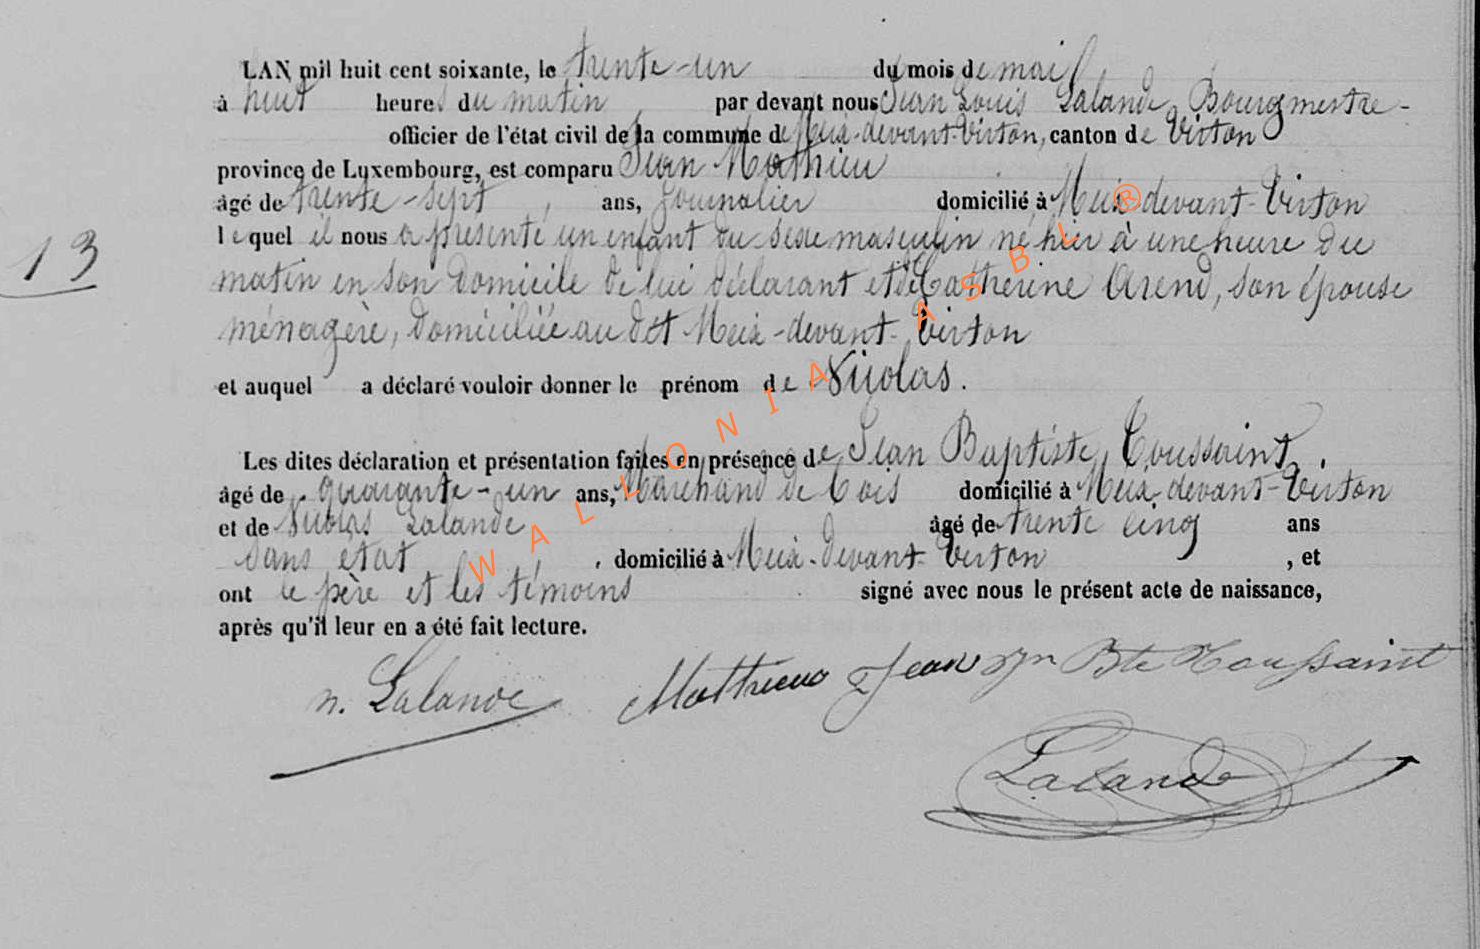 LAN mil huit cent soixante, le trente-un du mois de mai
à huit heures du matin par devant nous Jean Louis Lalande, Bourgmestre-
officier de l'état civil de la commune de Meix-devant-Virton, canton de Virton
province de Luxembourg, est comparu Jean Mathieu
âgé de trente-sept ans, Journalier domicilié à Meix-devant-Virton
13 lequel il nous a présenté un enfant du sexe masculin né hier à une heure du
matin en son domicile de lui déclarant et de Catherine Arend, son épouse
ménagère, domiciliée au dit Meix-devant-Virton
et auquel a déclaré vouloir donner le prénom de Nicolas.
Les dites déclaration et présentation faites en présence de Jean Baptiste Toussaint,
âgé de quarante-un ans, Marchand de bois domicilié à Meix-devant-Virton
et de Nicolas Lalande âgé de trente cinq ans
sans état, domicilié à Meix-devant-Virton, et
ont le père et les témoins signé avec nous le présent acte de naissance,
après qu'il leur en a été fait lecture.
n. Lalande Mathieux Jean Jn Bte Toussaint
Lalande
WALLONIA ASBL ®